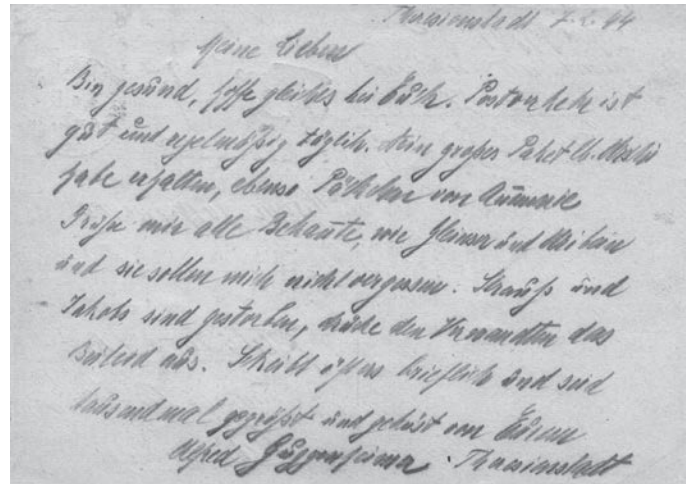 Theresienstadt 7.2.44
Meine Lieben
Bin gesund, hoffe gleiches bei Euch. Postverkehr ist
gut und regelmäßig täglich. Dein großes Paket
habe erhalten, ebenso Päckchen von Annemarie
Grüße mir alle Bekannte, wie und
und sie sollen mich nicht vergessen. Strauß und
Jakobs sind gestorben, drücke den Verwandten das
Beileid aus. Schreibt öfters brieflich und seid
tausendmal gegrüßt und geküsst von Eurem
Alfred Guggenheimer. Theresienstadt